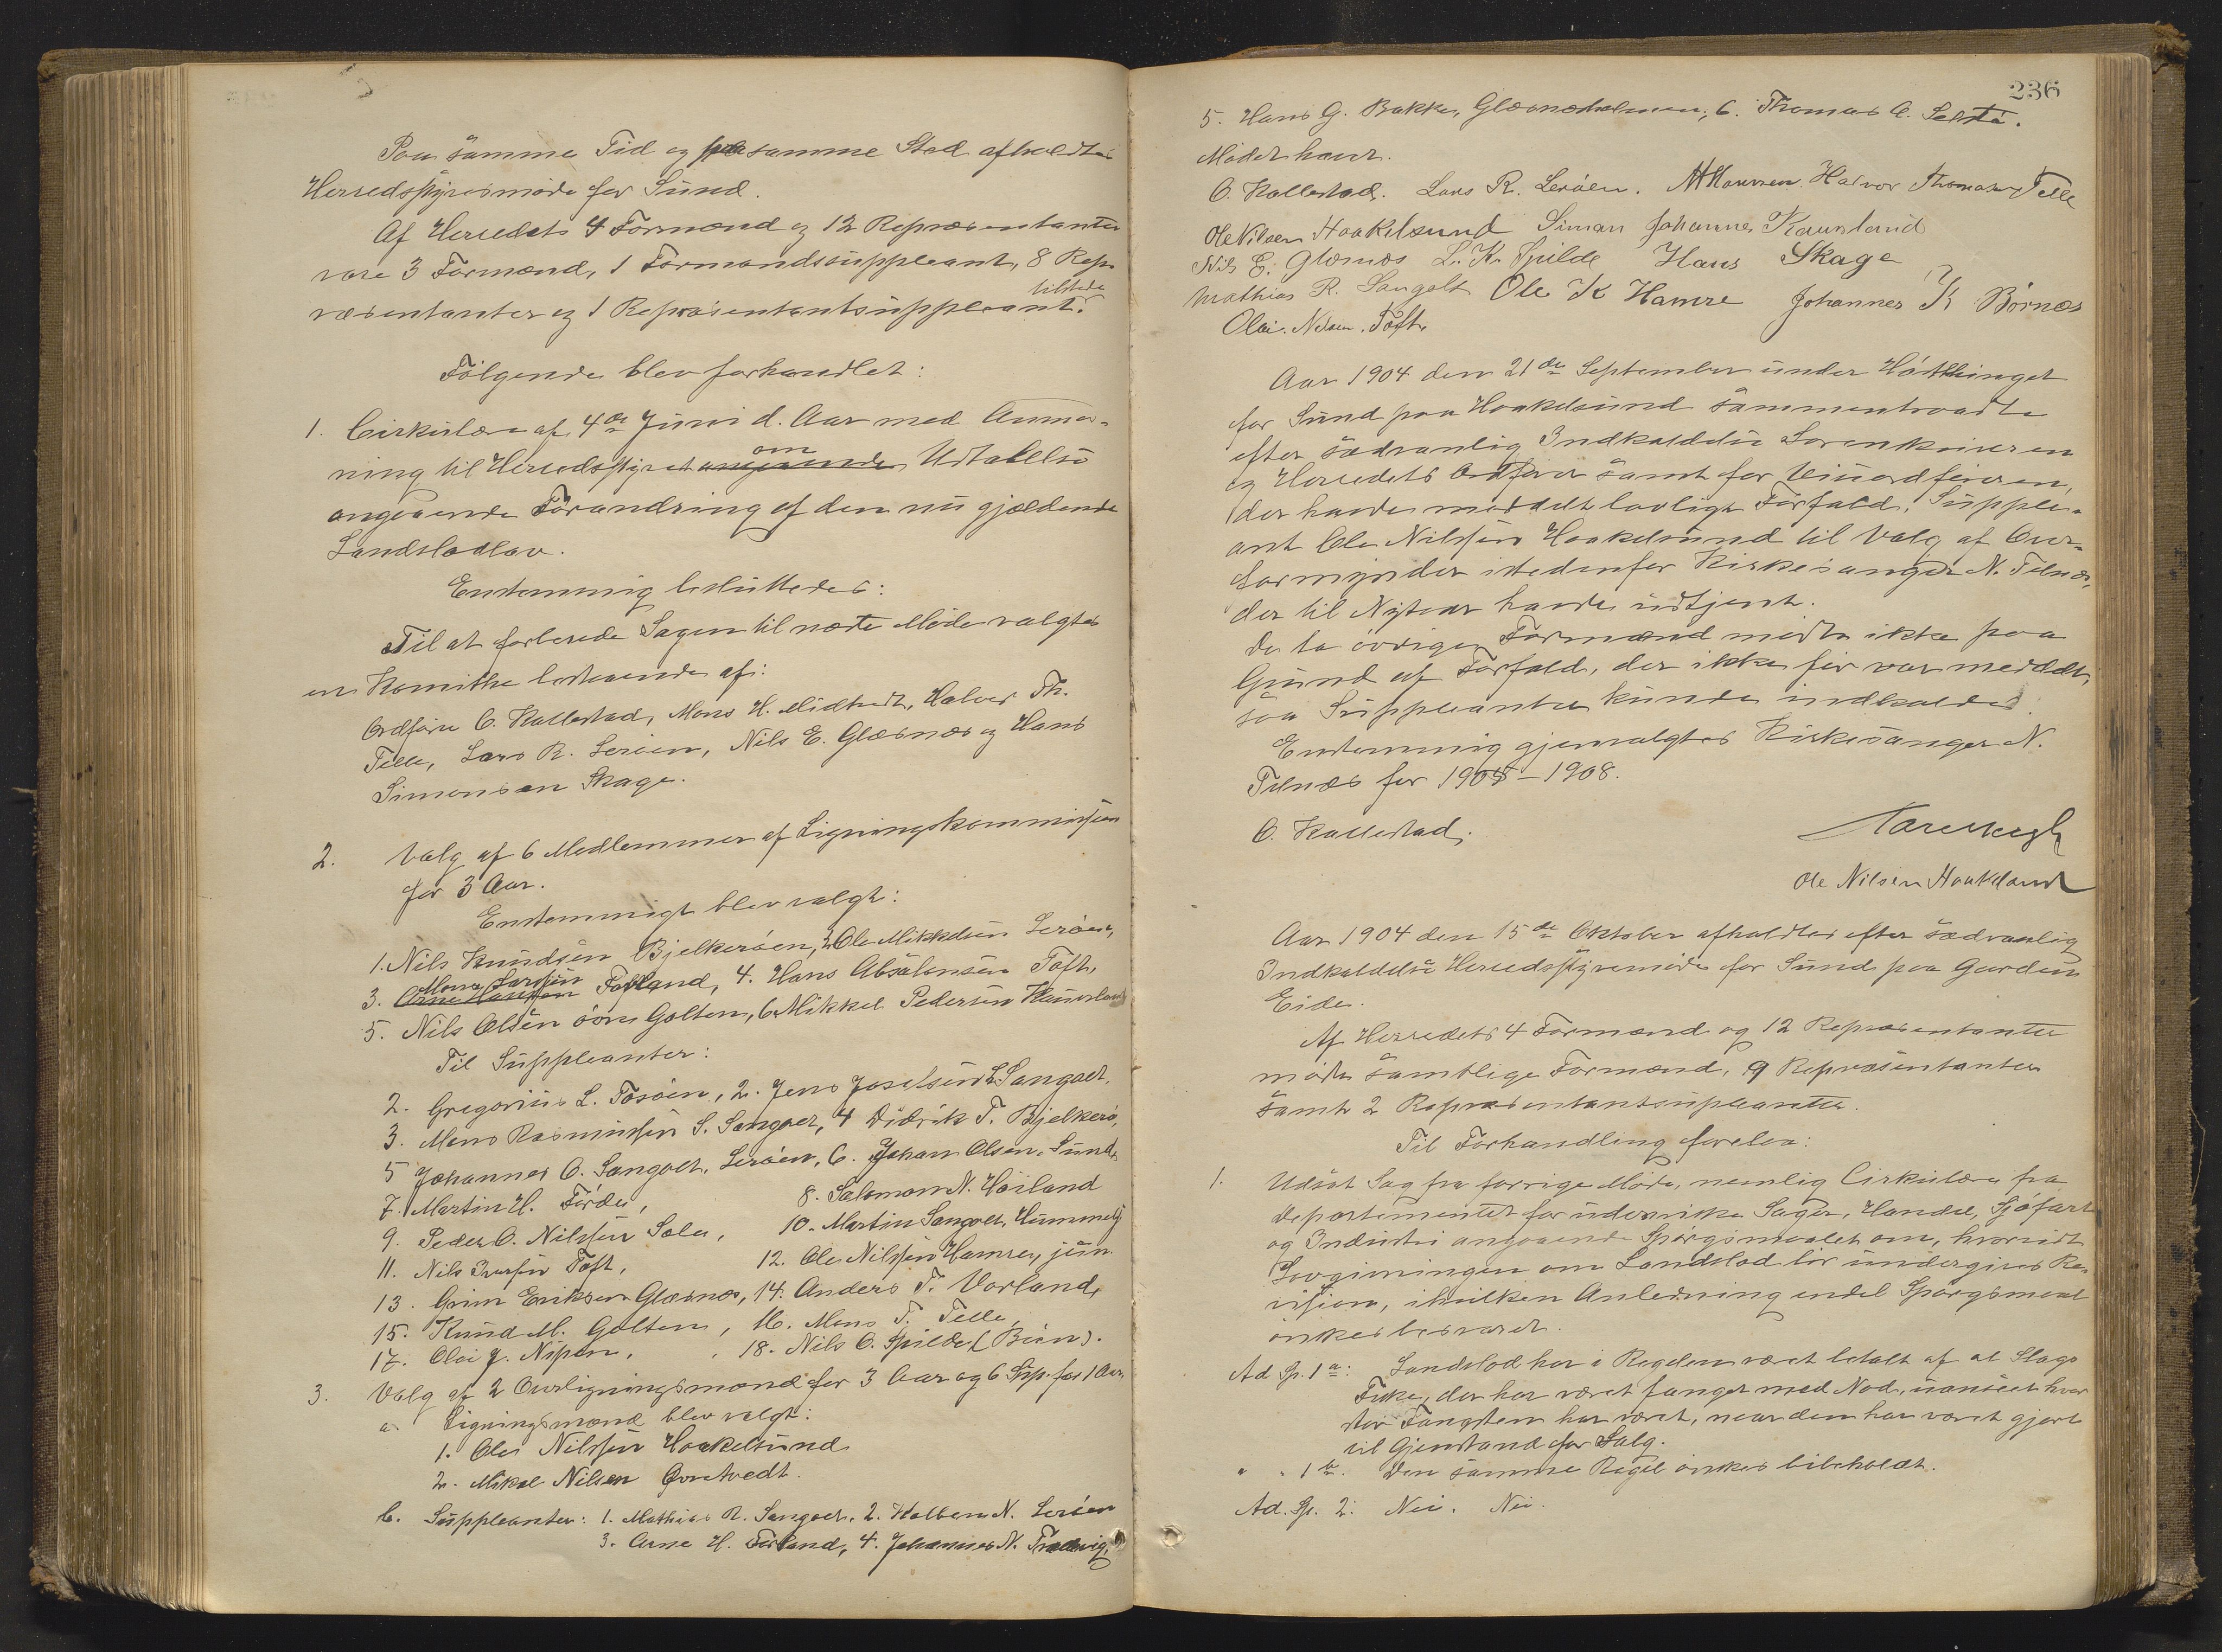 Paa samme Tid og paa samme Sted afholdtes
Herredsstyresmøde for Sund.
Af Herredets 4 Formænd og 12 Repræsentanter
vare 3 Formænd, 1 Formandssuppleant, 8 Rep-
ræsentanter og 1 Repræsentantsuppleant tilstede.
Følgende blev forhandlet:
1. Cirkulære af 4de Juni d. Aar med Anmod-
ning til Herredsstyret angaaende om Udtalelse
angaaende Forandring af den nu gjældende
Landslodlov.
Enstemmig besluttedes:
Til at forberede Sagen til næste Møde valgtes
en Komithe bestaaende af:
Ordfører O. Kallestad, Mons H. Midttvedt, Halvor Th.
Telle, Lars R. Lerøen, Nils E. Glæsnæs og Hans
Simonsen Skage.
2. Valg af 6 Medlemmer af Ligningskommissjon
for 3 Aar.
Enstemmigt blev valgt:
1. Nils Knudsen Bjelkerøen, 2 Ole Mikkelsen Lerøen,
3. Arne Hansen Mons Larssen Forland, 4. Hans Absalonsen Toft,
5. Nils Olsen øvre Golten, 6 Mikkel Pedersen Kausland
Til Suppleanter:
2. Gregorius L. Tøsøen, 2. Jens Josefsen L Sangolt.
3. Mons Rasmussen S. Sangolt, 4 Didrik T. Bjelkerø,
5 Johannes O. Sangolt, Lerøen, 6. Johan Olsen, Sund,
7. Martin H. Førde, 8. Salomon N. Høiland
9. Peder O. Nilssen Sæle, 10. Martin Sangolt, Hummelsj
11. Nils Iversen Toft, 12. Ole Nilssen Hamre, jun.
13. Grim Eriksen Glæsnæs, 14. Anders T. Vorland,
15. Knud M. Golten, 16. Mons T. Telle,
17. Oloi J. Nipen, 18. Nils O. Spilde (Bien).
3. Valg af 2 Overligningsmænd for 3 Aar og 6 Sup. for 1 Aar.
a. Ligningsmænd blev valgt:
1. Ole Nilssen Haakelsund
2. Mikal Nilsen Øvretvedt.
b. Suppleanter: 1. Mathias R. Sangolt, 2. Halben N. Lerøen
3. Arne H. Forland, 4. Johannes N. Trædvig,
236
5. Hans G. Bakke, Glæsnæsholmen, 6. Thomas A. Selstø.
Mødet hævet.
O. Kallestad. Lars R. Lerøen. Halvor Thomasen Telle
Ole Nilsen Haakelsund Simon Johannes Kausland
Nils E. Glæsnæs L. K. Spilde Hans Skage
Mathias R. Sangolt Ole K Hamre Johannes K Børnes
Oloi. Nilsen. Toft.
Aar 1904 den 21de September under Høstthinget
for Sund paa Haakelsund sammentraadte
efter sædvanlig Indkaldelse Sorenskriveren
og Herredets Ordfører samt for Viceordføreren,
der havde meddelt lovligt Forfald, Supple-
ant Ole Nilssen Haakelsund til Valg af Over-
formynder istedenfor Kirkesanger N. Telnæs,
der til Nytaar havde udtjent.
De to øvrige Formænd mødte ikke paa
Grund af Forfald, der ikke før var meddelt,
saa Suppleanter kunde indkaldes.
Enstemmig gjenvalgtes Kirkesanger N.
Telnæs for 1905–1908.
O. Kallestad.
Ole Nilsen Haakelsund
Aar 1904 den 15de Oktober afholdtes efter sædvanlig
Indkaldelse Herredsstyremøde for Sund paa Gaarden
Eide.
Af Herredets 4 Formænd og 12 Repræsentanter
mødte samtlige Formænd, 9 Repræsentanter
samt 2 Repræsentantsupleanter.
Til Forhandling forelaa:
1. Udsat Sag fra forrige Møde, nemlig Cirkulære fra
Departementet for udenrikske Sager, Handel, Sjøfart
og Industri angaaende Spørgsmaalet om, hvorvidt
Lovgivningen om Landslod bør undergives Re-
vision, ihvilken Anledning endel Spørgsmaal
ønskes besvaret.
Ad Sp. 1a: Landslod har i Regelen været betalt af al Slags
Fiske, der har været fanget med Nod, uanseet hvor
stor Fangsten har været, naar den har været gjort
til Gjenstand for Salg.
" " 1b. Den samme Regel ønskes bibeholdt.
Ad. Sp. 2: Nei. Nei.